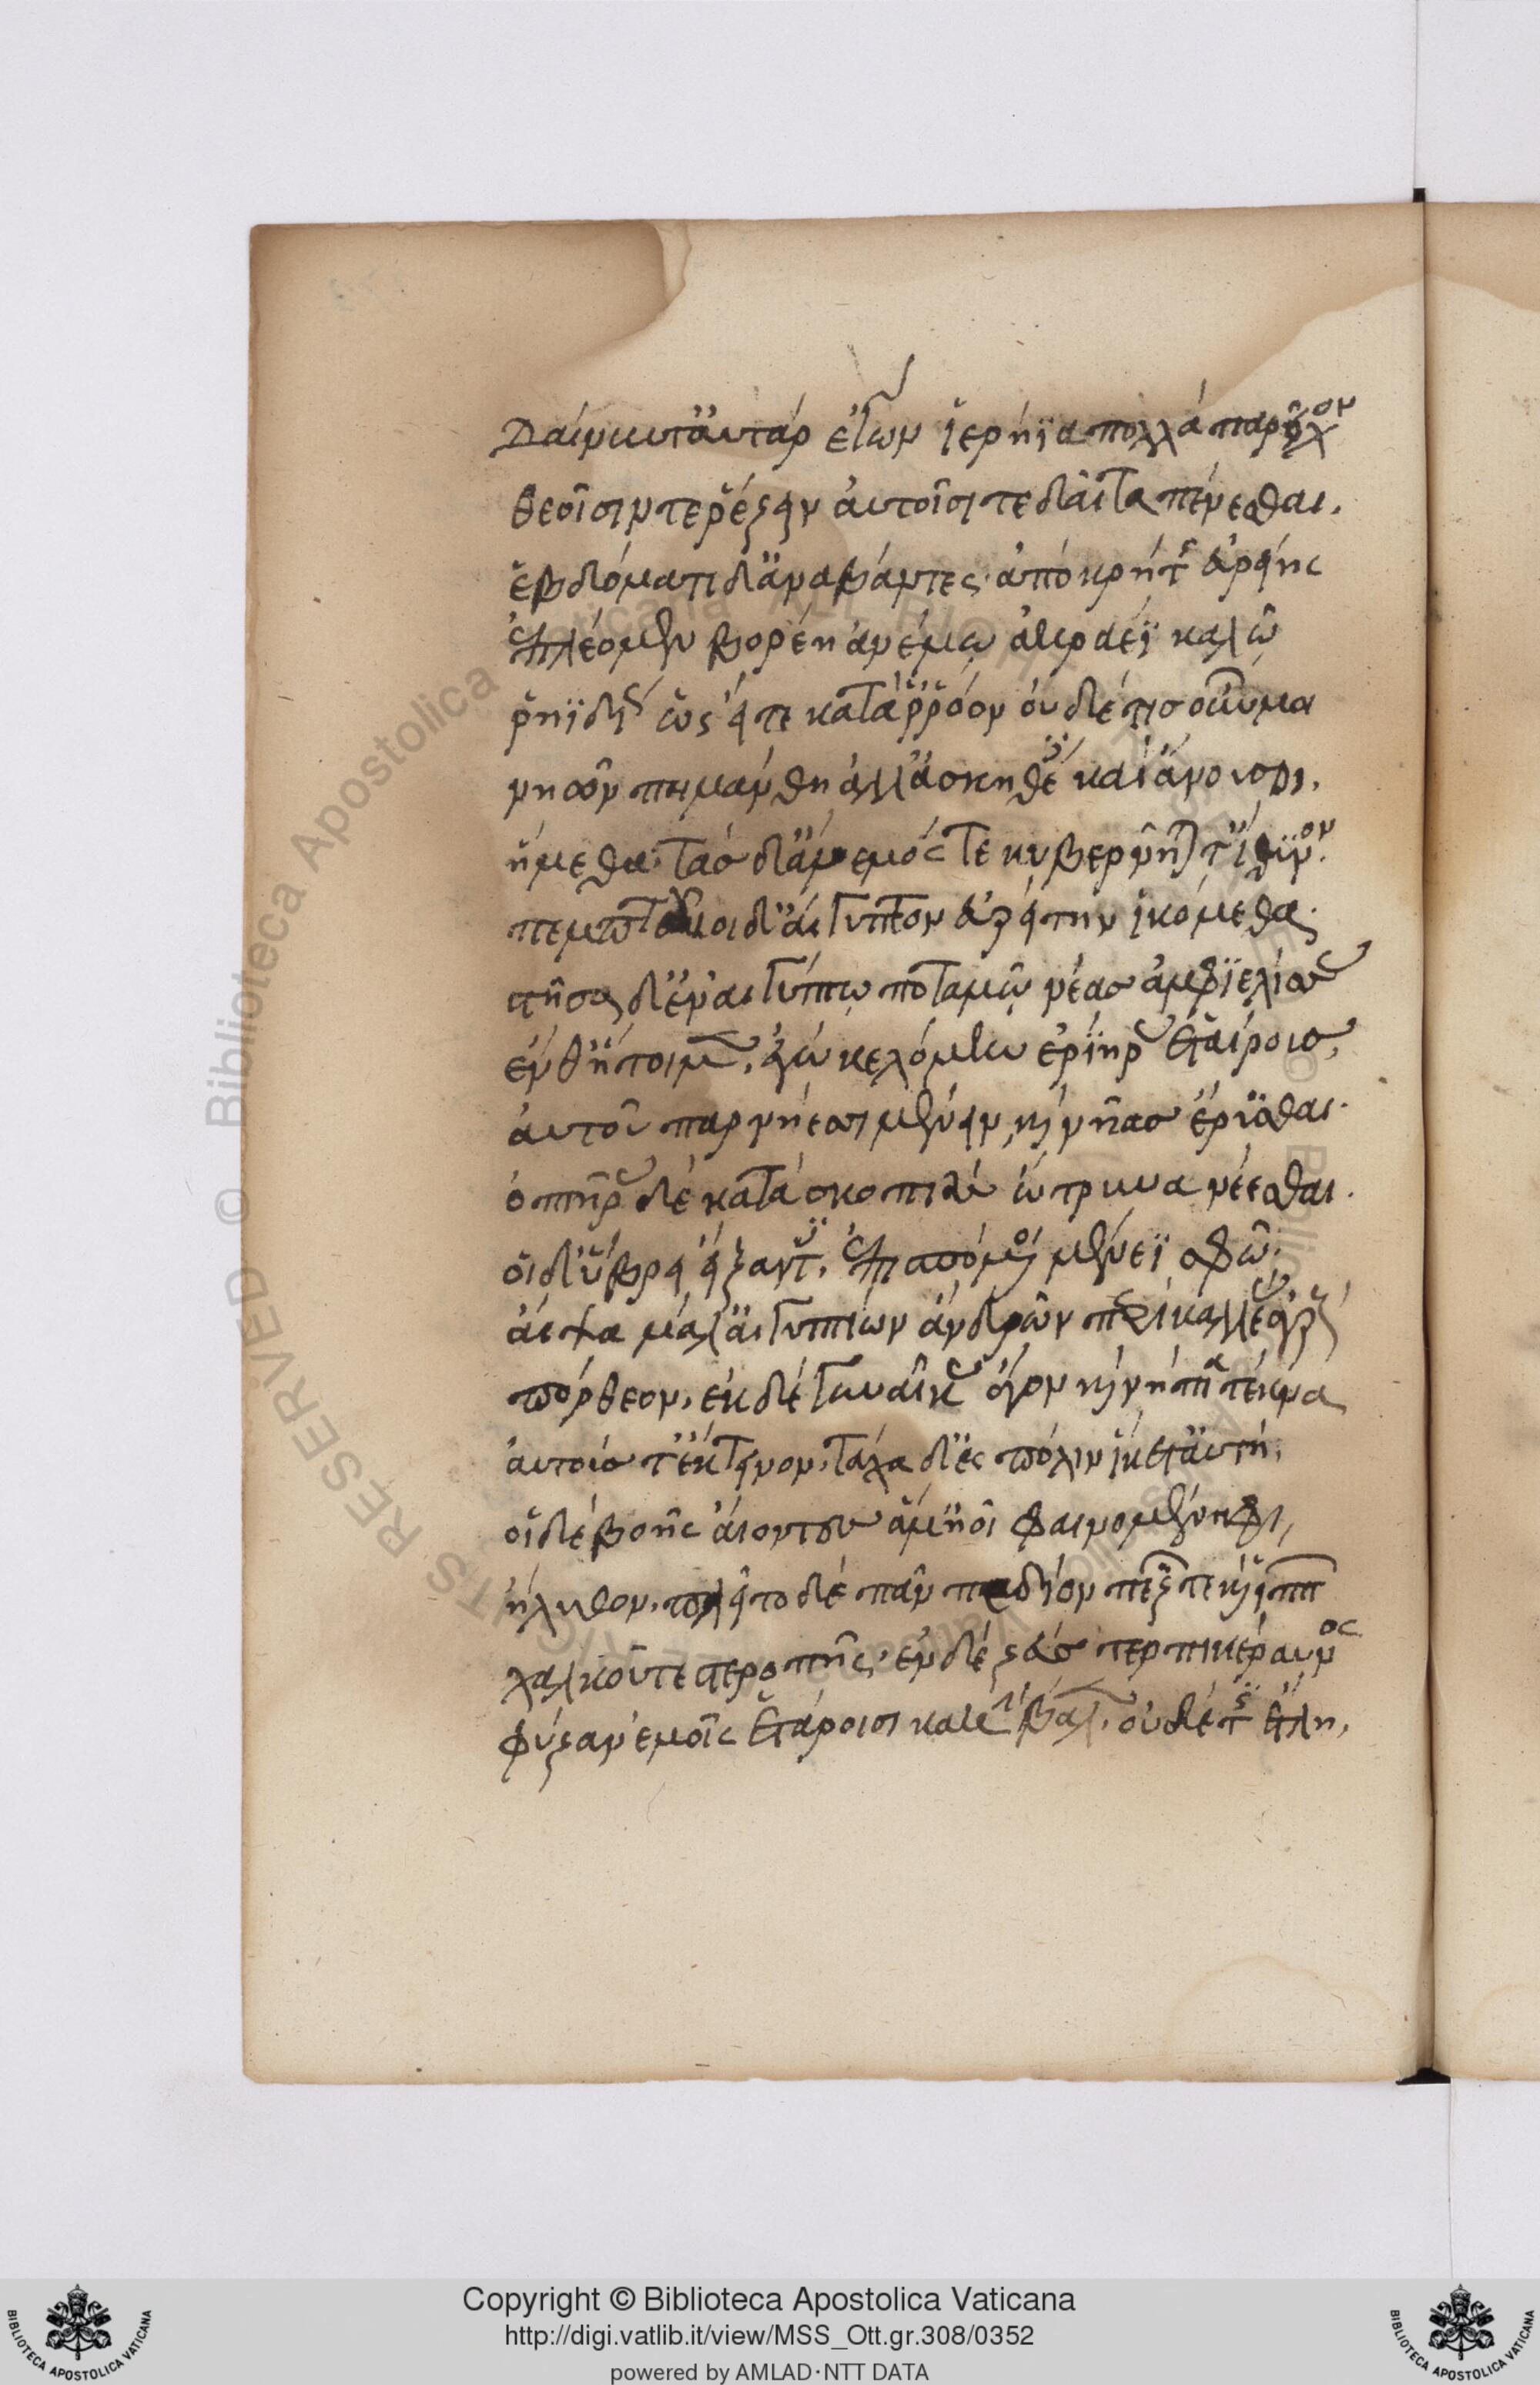 δαίνυντ' ἀυτὰρ ἐγὼν ἱερήϊα πολλὰ παρεῖχον
θεοῖσίν τε ῥέζειν ἀυτοῖσί τε δαῖτα πένεσθαι.
ἑβδομάτη δ' ἀναβάντες ἀπὸ κρήτης ἐυρείης
ἐπλέομεν βορέῃ ἀνέμῳ ἀκραέϊ καλῷ
ῥηϊδίως ὡς εἴ τε κατὰ ῥρόον οὐδέ τις οὖν μοι
νηῶν πημάνθη ἀλλ' ἀσκηθέες καὶ ἄνουσοι.
ἥμεθα τὰς δ' ἄνεμός τε κυβερνῆται τ' ἴθυνον.
πεμπταῖοι δ' ἄιγυπτον ἐϋρρείτην ἱκόμεσθα.
στῆσα δ' ἐν αἰγύπτῳ ποταμῷ νέας ἀμφιελίσσας
ἔνθ' ἤτοι μὲν ἐγὼ κελόμην ἐρίηρας ἑταίρους,
ἀυτοῦ παρ νήεσσι μένειν καὶ νῆας ἔρυσθαι.
ὀπτῆρας δὲ κατὰ σκοπιὰς ὤτρυνα νέεσθαι.
οἱ δ' ὕβρει εἴξαντες, ἐπισπόμενοι μένεϊ σφῷ,
ἀῖψα μάλ' ἀιγυπτίων ἀνδρῶν περικαλλέας ἀγροὺς
πόρθεον, ἐκ δὲ γυναῖκας ἄγον καὶ νήπια τέκνα
ἀυτούς τ' ἔκτεινον, τάχα δ' ἐς πόλιν ἵκετ' ἀυτή.
οἱ δὲ βοῆς ἀίοντες ἅμ' ἠοῖ φαινομένηφι,
ἤλυθον, πλῆτο δὲ πᾶν πεδίον πεζῶν τε καὶ ἵππων
χαλκοῦ τε στεροπῆς, ἐν δὲ ζεὺς τερπικέραυνος
φύζαν ἐμοῖς ἑτάροισι κακὴν βάλεν, οὐδέ τις ἔτλη,
Copyright © Biblioteca Apostolica Vaticana
http://digi.vatlib.it/view/MSS_Ott.gr.308/0352
powered by AMLAD·NTT DATA